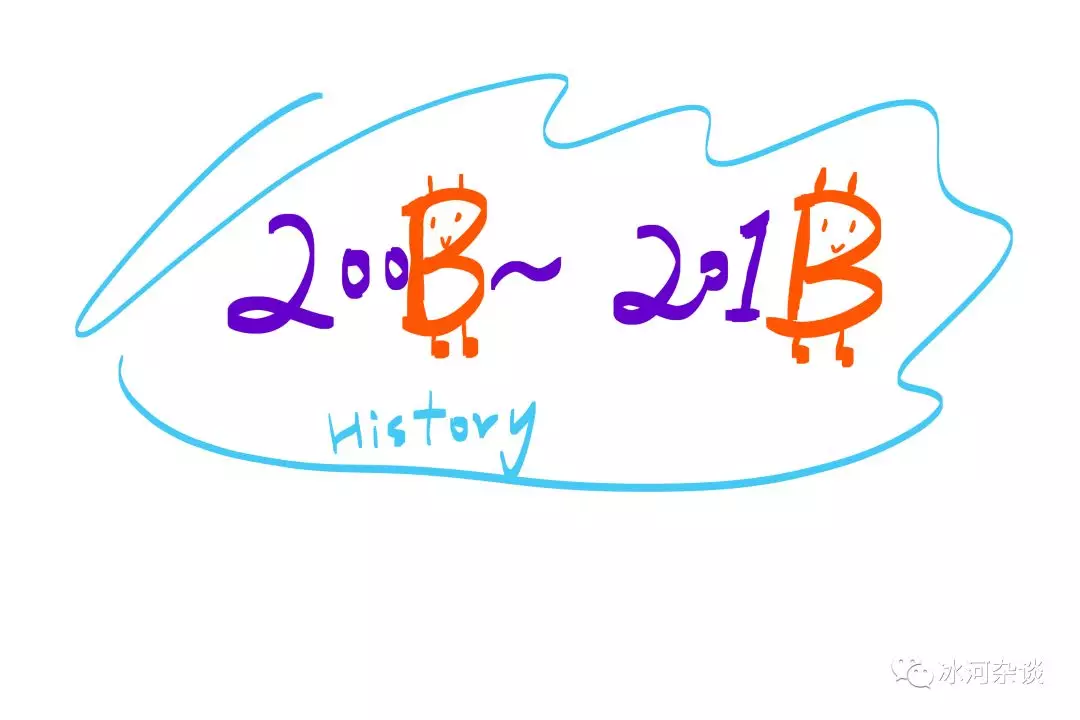 200B~ 201B
History
冰河杂谈